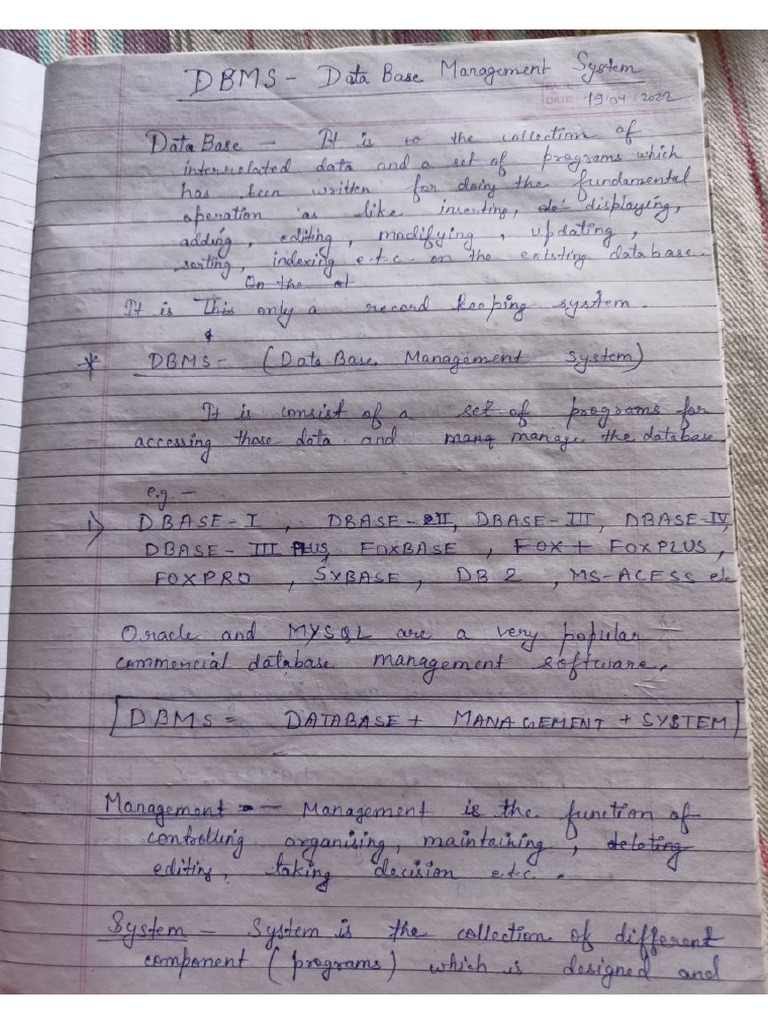 DBMS - Data Base Management System
DATE 19/04/2022
Data Base - It is to the collection of
interrelated data and a set of programs which
has been written for doing the fundamental
operation as like inserting, de displaying,
adding, editing, modifying, updating,
sorting, indexing e.t.c on the existing database.
On the
It is This only a record keeping system.
* DBMS - (Data Base Management System)
It is consist of a set of programs for
accessing those data and manq manage the database
e.g -
1) DBASE-I, DBASE-II, DBASE-III, DBASE-IV,
DBASE-III PLUS, FOXBASE, FOX+ FOXPLUS,
FOXPRO, SYBASE, DB 2, MS-ACESS etc
Oracle and MYSQL are a very popular
commercial database management software.
DBMS = DATABASE + MANAGEMENT + SYSTEM
Management :- Management is the function of
controlling organising, maintaining, deleting
editing, taking decision e.t.c.
System - System is the collection of different
component (programs) which is designed and